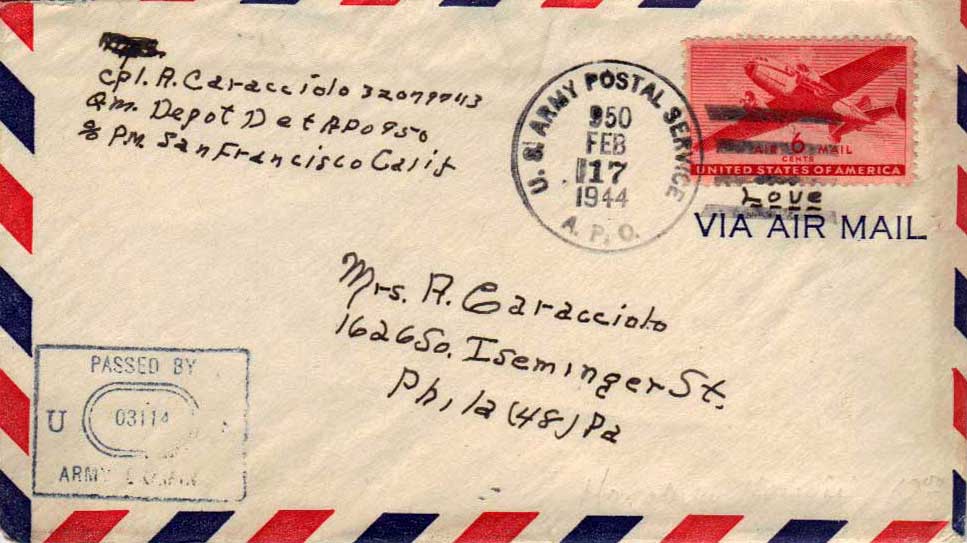 Cpl. A. Caracciolo 32079943
Qm. Depot Det APO 950
% P.M. San Francisco Calif
U. S. ARMY POSTAL SERVICE
950
FEB
17
1944
A. P. O.
AIR 6 MAIL
CENTS
UNITED STATES OF AMERICA
Love
VIA AIR MAIL
Mrs. A. Caracciolo
1626 So. Iseminger St.
Phila (48) Pa
PASSED BY
U
03114
ARMY